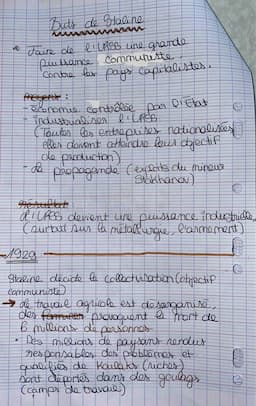 Buts de Staline
* Faire de l'URSS une grande
puissance communiste.
contre les pays capitalistes.
Moyens :
- économie contrôlée par l'Etat
- industrialiser l'URSS
(Toutes les entreprises nationalisées
elles doivent atteindre leurs objectif
de production)
- la propagande (exploits du mineur
Stakhanov)
Résultat
L'URSS devient une puissance industrielle
(surtout sur la métallurgie, l'armement)
1929
Staline décide la collectivisation (objectif
communiste)
→ le travail agricole est désorganisé
des famines provoquent la mort de
6 millions de personnes
• Des millions de paysans rendus
responsables des problèmes et
qualifiés de Koulaks (riches)
sont déportés dans des goulags
(camps de travail)